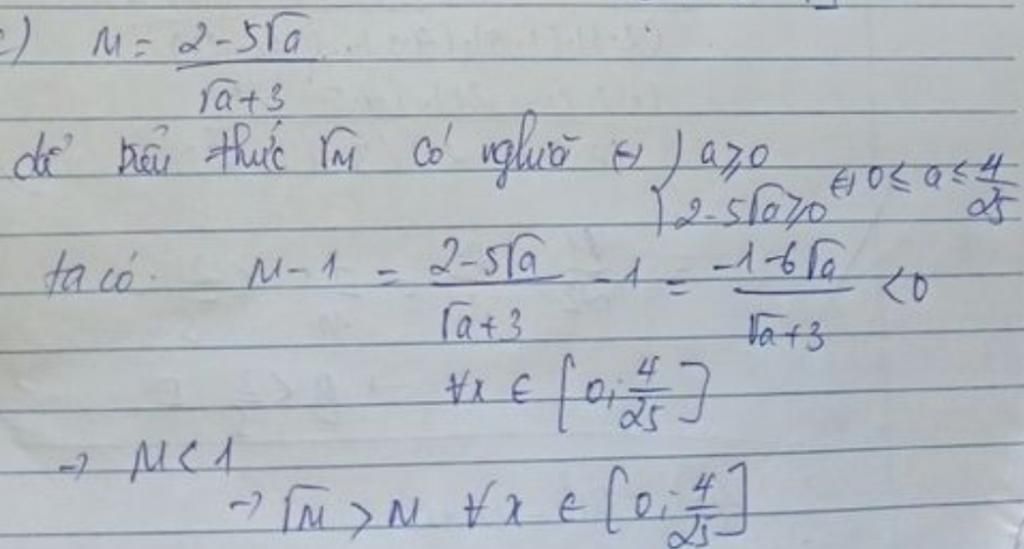 c) M = (2-5√a)/(√a+3)
để biểu thức √M có nghĩa ⇔ { a ≥ 0
2-5√a ≥ 0 ⇔ 0 ≤ a ≤ 4/25
ta có. M-1 = (2-5√a)/(√a+3) - 1 = (-1-6√a)/(√a+3) < 0
∀x ∈ [0; 4/25]
→ M < 1
→ √M > M ∀x ∈ [0; 4/25]